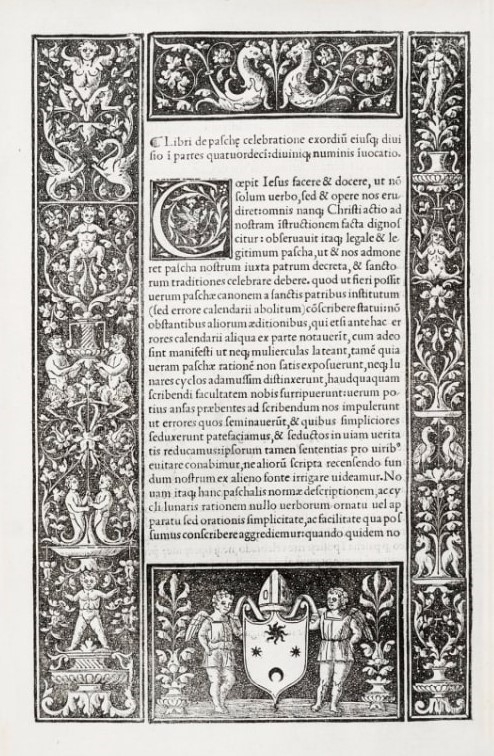 ⸿ Libri de paschę celebratione exordiū eiusq; diui
sio ī partes quatuordecī: diuiniq; numinis īuocatio.
Cœpit Iesus facere & docere, ut nō
solum uerbo, sed & opere nos eru-
diret: omnis nanq; Christi actio ad
nostram īstructionem facta dignos
citur: obseruauit itaq; legale & le-
gitimum pascha, ut & nos admone
ret pascha nostrum iuxta patrum decreta, & sancto-
rum traditiones celebrare debere. quod ut fieri possit
uerum paschæ canonem a sanctis patribus institutum
(sed errore calendarii abolitum) cōscribere statui: nō
obstantibus aliorum æditionibus, qui etsi antehac er
rores calendarii aliqua ex parte notauerit, cum adeo
sint manifesti ut neq; mulierculas lateant, tamē quia
ueram paschæ rationē non satis exposuerunt, neq; lu
nares cyclos adamussim distinxerunt, haudquaquam
scribendi facultatem nobis surripuerunt: uerum po-
tius ansas præbentes ad scribendum nos impulerunt
ut errores quos seminauerūt, & quibus simpliciores
seduxerunt patefaciamus, & seductos in uiam uerita
tis reducamus: ipsorum tamen sententias pro uirib⁹
euitare conabimur, ne aliorū scripta recensendo fun
dum nostrum ex alieno fonte irrigare uideamur. No
uam itaq; hanc paschalis normæ descriptionem, ac cy
cli lunaris rationem nullo uerborum ornatu uel ap
paratu sed orationis simplicitate, ac facilitate qua pos
sumus conscribere aggrediemur: quando quidem no